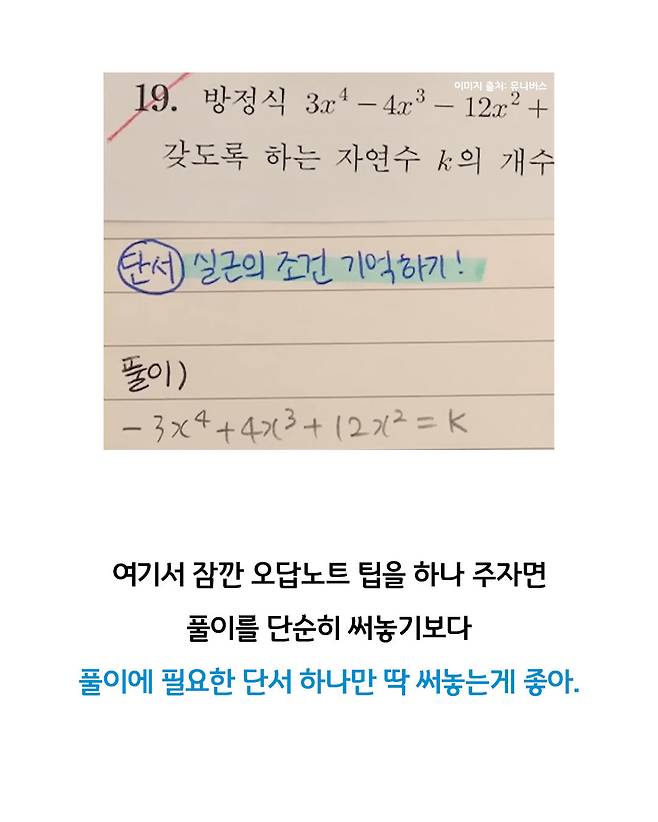 이미지 출처: 유니버스
19. 방정식 3x⁴ − 4x³ − 12x² +
갖도록 하는 자연수 k의 개수
단서 실근의 조건 기억하기!
풀이)
−3x⁴+4x³+12x²=K
여기서 잠깐 오답노트 팁을 하나 주자면
풀이를 단순히 써놓기보다
풀이에 필요한 단서 하나만 딱 써놓는게 좋아.